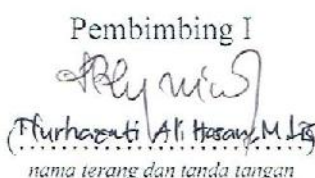 Pembimbing I
(Nurhazuti Ali Hasan, M.
nama terang dan tanda tangan